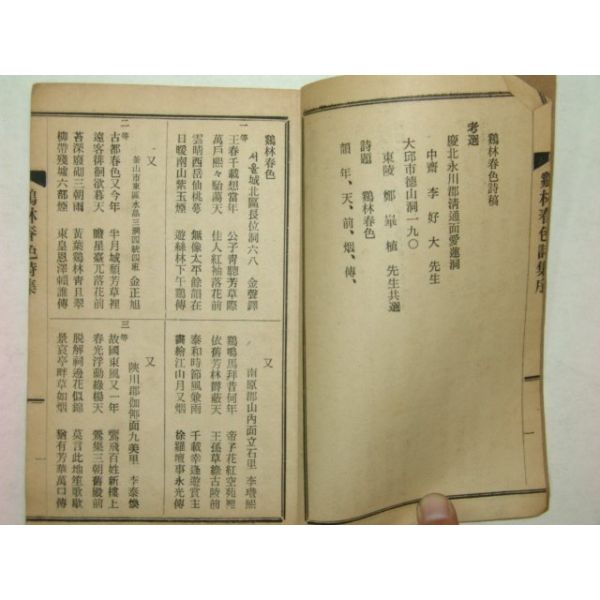 鷄林春色詩集序
鷄林春色詩稿
考選
慶北永川郡清通面愛蓮洞
中齋 李好大 先生
大邱市德山洞一九〇
東陵 鄭 植 先生共選
詩題 鷄林春色
韻、年、天、前、烟、傳、
鷄林春色
一等 서울城北區長位洞六八 金聲鐸
王春千載想當年 公子靑驄芳草際
萬戶熙々駘蕩天 佳人紅袖落花前
雲晴西岳仙桃夢 無像太平餘韻在
日暖南山紫玉煙 遊絲林下午鷄傳
又
南原郡山內面立石里 李 熙
鷄鳴馬拜昔何年 帝子花紅空苑裡
依舊芳林欝蔽天 王孫草綠古陵前
泰和時節風兼雨 千載幸逢遊賞主
畵繪江山月又烟 徐羅壇事永光傳
又
二等 釜山市東區水晶三洞四統四班 金正旭
古都春色又今年 半月城頹芳草裡
遠客徘徊欲暮天 瞻星臺兀落花前
苔深廢砌三朝雨 黃葉鷄林靑且翠
柳帶殘墟六部煙 東皇恩澤頓誰傳
又
三等 陜川郡伽倻面九美里 李泰煥
故國東風又一年 鸞飛百姓新樓上
春光浮動綠楊天 鶯集三朝舊殿前
脱解祠邊花似錦 莫言此地笙歌歇
景哀亭畔草如烟 猶有芳華萬口傳
鷄林春色詩集